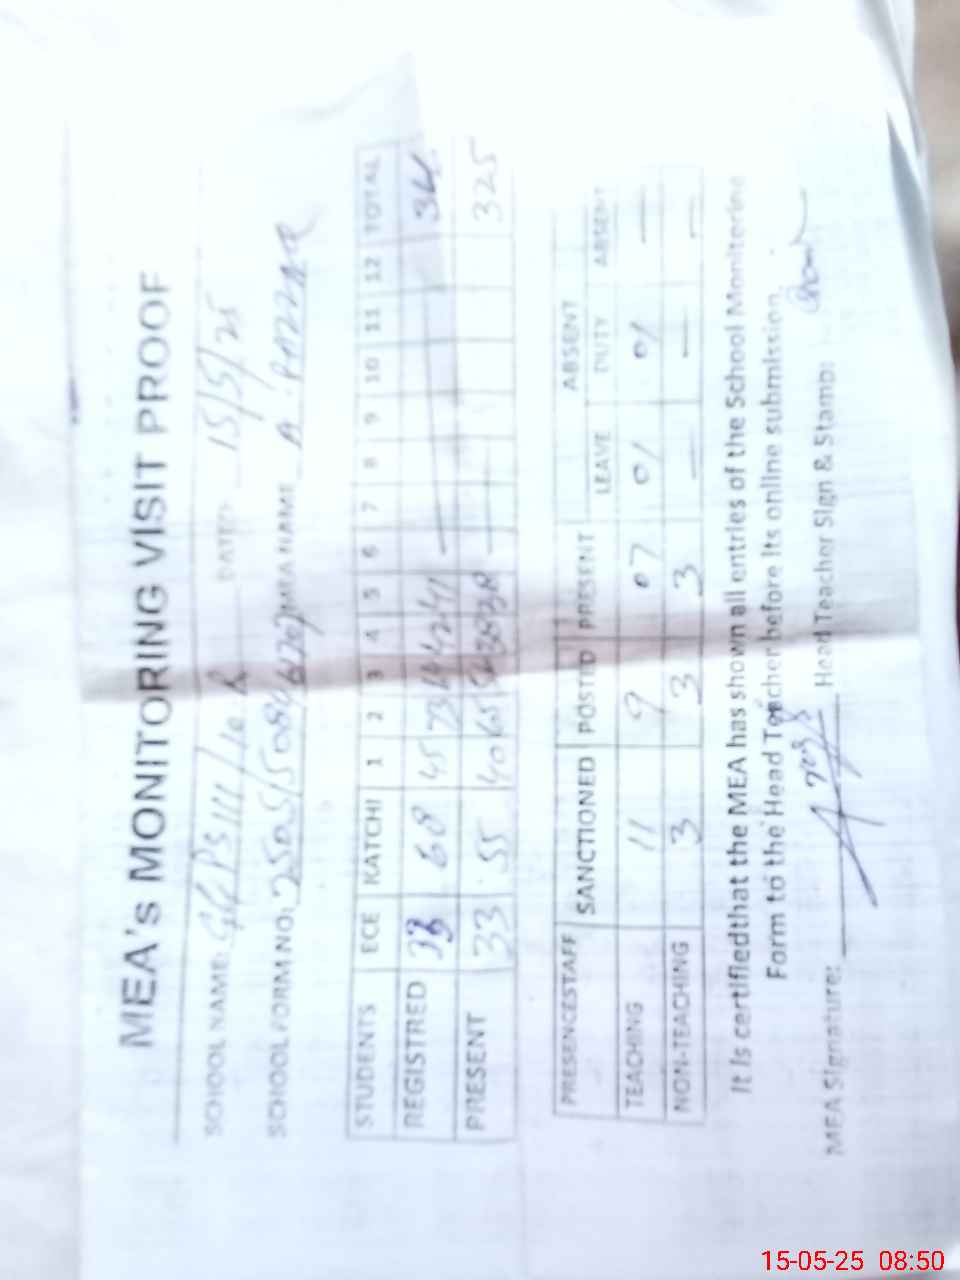 MEA's MONITORING VISIT PROOF
SCHOOL NAME: 111/10 R DATED 15/5/25
SCHOOL FORM NO: MEA NAME A.
STUDENTS ECE KATCHI 1 2 3 4 5 6 7 8 9 10 11 12 TOTAL
REGISTRED 33 68 45 73 42 41 —
PRESENT 33 55 40 65 38 38 — 325
PRESENCESTAFF SANCTIONED POSTED PRESENT ABSENT
LEAVE DUTY ABSENT
TEACHING 11 9 07 01 01 —
NON-TEACHING 3 3 3 — — —
It is certifiedthat the MEA has shown all entries of the School Monitoring
Form to the Head Teacher before its online submission.
MEA Signature: Head Teacher Sign & Stamp:
15-05-25 08:50